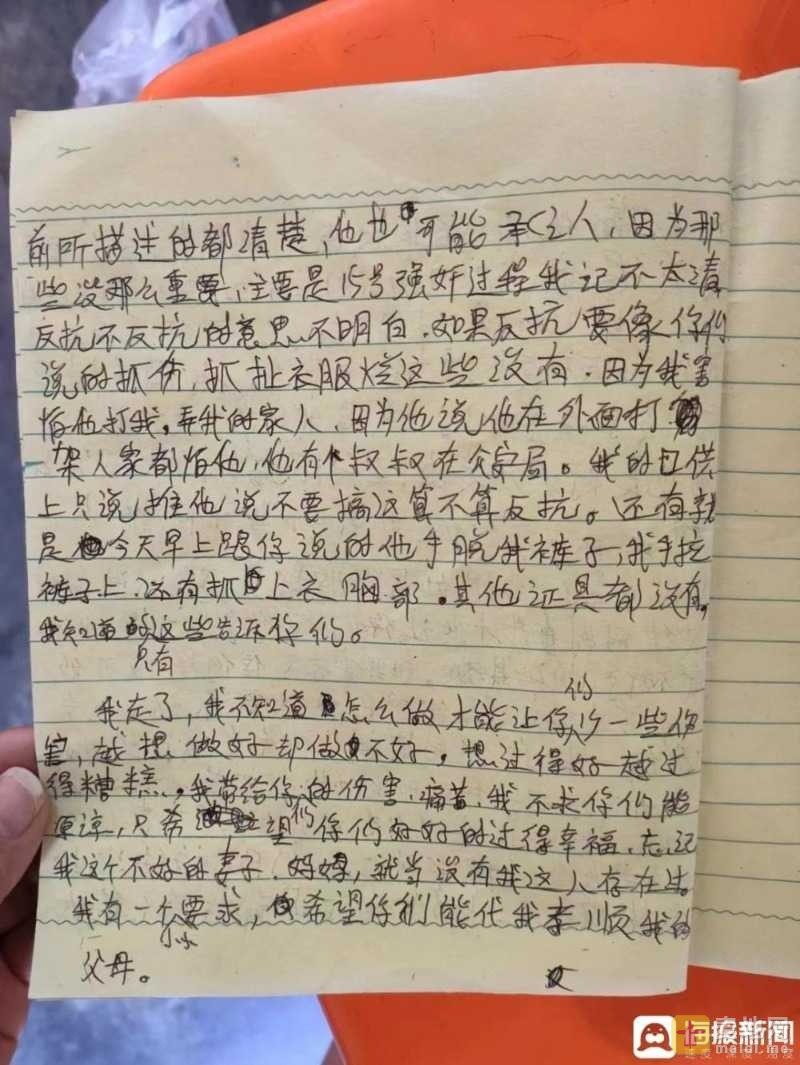 前所描述的都清楚，他也可能承认，因为那
些没那么重要，主要是15号强奸过程我记不太清
反抗不反抗的意思不明白．如果反抗要像你们
说的抓伤，抓扯衣服烂这些没有．因为我害
怕他打我，弄我的家人．因为他说他在外面打
架人家都怕他，他有个叔叔在公安局。我的口供
上只说推他说不要搞这算不算反抗。还有就
是今天早上跟你说的他手脱我裤子，我手拉
裤子上．还有抓上衣胸部。其他证具都没有，
我知道的只有这些告诉你们。
我走了，我不知道怎么做才能让你们少一些伤
害，越想做好却做不好，想过得好越过
得糟糕，我带给你的伤害、痛苦，我不求你们能
原谅，只希望你们好好的过得幸福、忘记
我这个不好的妻子．妈妈，就当没有我这人存在过。
我有一个小小要求，希望你们能代我孝顺我的
父母。
海报新闻